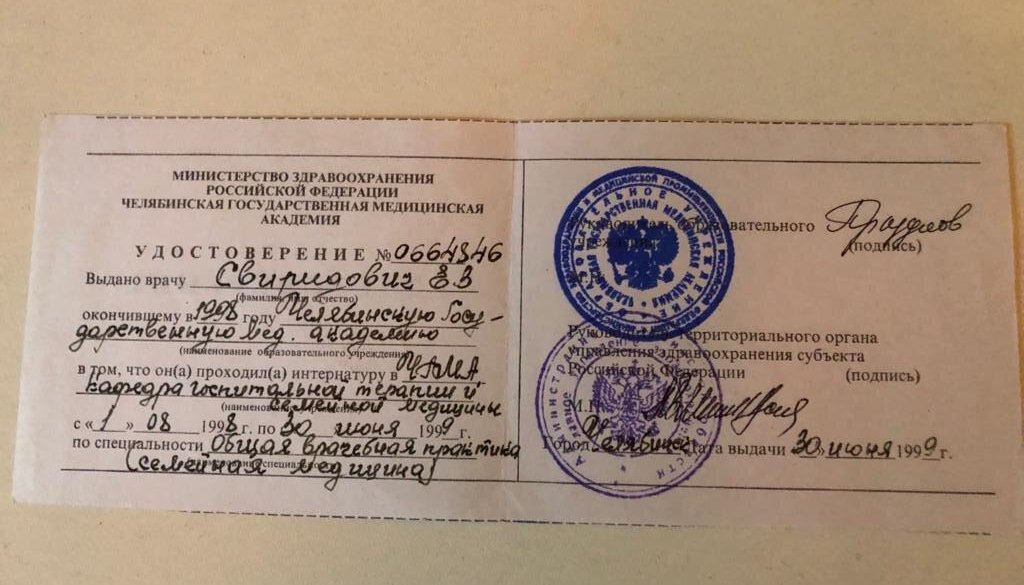 МИНИСТЕРСТВО ЗДРАВООХРАНЕНИЯ
РОССИЙСКОЙ ФЕДЕРАЦИИ
ЧЕЛЯБИНСКАЯ ГОСУДАРСТВЕННАЯ МЕДИЦИНСКАЯ
АКАДЕМИЯ
УДОСТОВЕРЕНИЕ № 0664846
Выдано врачу Свиридович Е.В
(фамилия, имя, отчество)
окончившему в 1998 году Челябинскую Госу-
дарственную мед. академию
(наименование образовательного учреждения)
в том, что он(а) проходил(а) интернатуру в ЧГМА
кафедра госпитальной терапии и
семейной медицины
с «1» 08 1998 г. по 30 июня 1999 г.
по специальности Общая врачебная практика
(семейная медицина)
образовательного
(подпись)
Руководитель территориального органа
управления здравоохранения субъекта
Российской Федерации (подпись)
М.П.
Город Челябинск Дата выдачи 30 июня 1999 г.